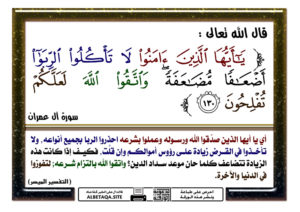 قال الله تعالى :
يَٰٓأَيُّهَا ٱلَّذِينَ ءَامَنُوا۟ لَا تَأْكُلُوا۟ ٱلرِّبَوٰٓا۟
أَضْعَٰفًا مُّضَٰعَفَةً ۖ وَٱتَّقُوا۟ ٱللَّهَ لَعَلَّكُمْ
تُفْلِحُونَ ١٣٠
سورة آل عمران
أي يا أيها الذين صدَّقوا الله ورسوله وعملوا بشرعه احذروا الربا بجميع أنواعه، ولا
تأخذوا في القرض زيادة على رؤوس أموالكم وإن قلَّت، فكيف إذا كانت هذه
الزيادة تتضاعف كلما حان موعد سداد الدين؟ واتقوا الله بالتزام شرعه؛ لتفوزوا
في الدنيا والآخرة.
(التفسير الميسر)
ALBETAQA.SITE